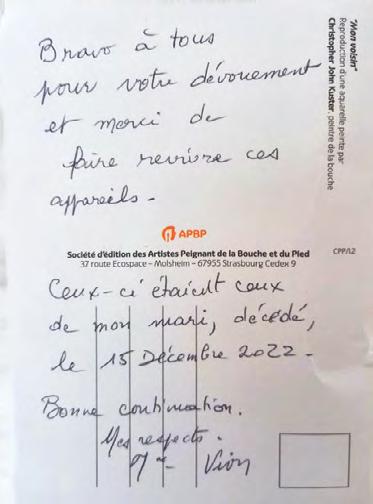 Bravo à tous
pour votre dévouement
et merci de
faire revivre ces
appareils.
"Mon voisin"
Reproduction d'une aquarelle peinte par
Christopher John Kuster, peintre de la bouche
APBP
Société d'édition des Artistes Peignant de la Bouche et du Pied
37 route Ecospace – Molsheim – 67955 Strasbourg Cedex 9
CPP/12
Ceux-ci étaient ceux
de mon mari, décédé,
le 15 Décembre 2022.
Bonne continuation.
Mes respects.
Vion